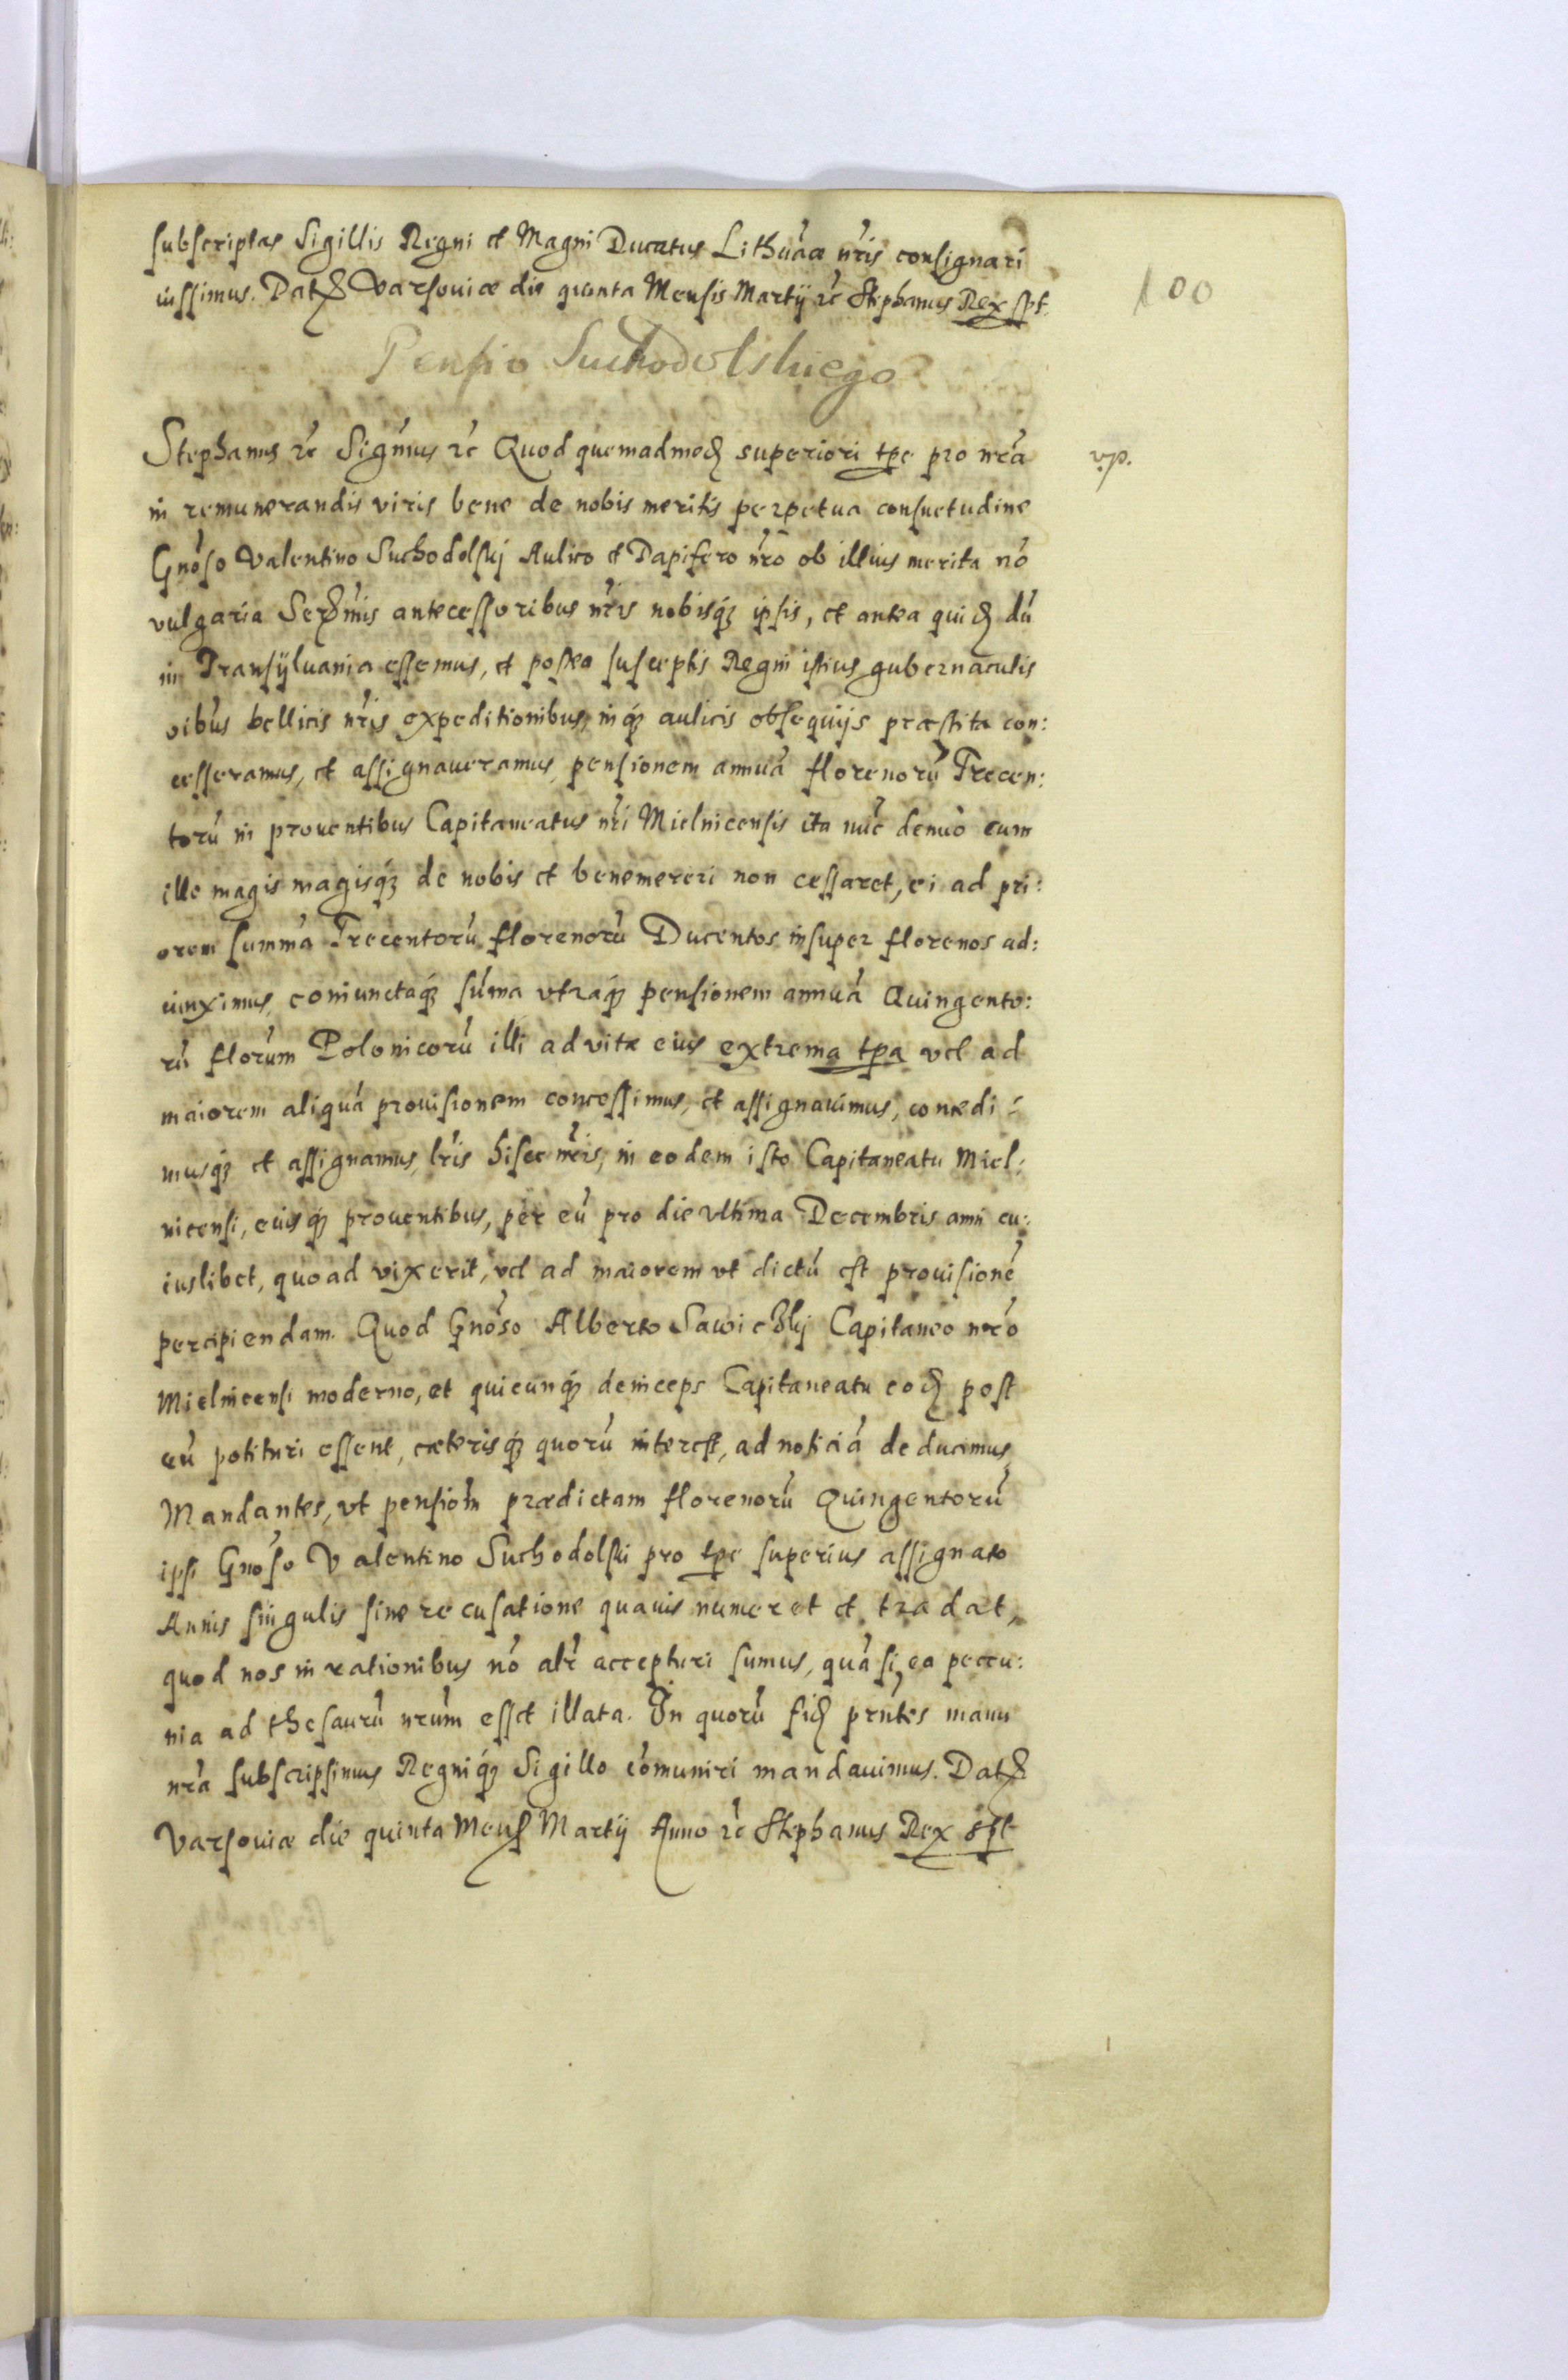 subscriptas Sigillis Regni et Magni Ducatus Lithuãae nr̃is consignari
iussimus. Dat Varsouiae die quinta Mensis Martij etc̃ Stephanus Rex sst.
100
Pensio Suchodolskiego
Stephanus etc̃ Sig̃mus etc̃ Quod quemadmod superiori tpe pro nr̃a
vip.
in remunerandis viris bene de nobis meritis perpetua consuetudine
Gnõso Valentino Suchodolskj Aulico et Dapifero nr̃o ob illius merita nõ
vulgaria Ser̃mis antecessoribus nr̃is nobisq́ꝫ ipsis, et antea quid dũ
in Transÿluania essemus, et postea susceptis Regni istius gubernaculis
oĩbus bellicis nr̃is expeditionibus, inq́ꝫ aulicis obsequijs praestita con:
cesseramus, et assignaueramus pensionem annuã florenorũ Trecen:
torũ in prouentibus Capitaneatus nr̃i Mielnicensis ita nũc denuò cum
ille magis magisq́ꝫ de nobis et benemereri non cessaret, ei ad pri:
orem summã Trecentorũ florenorũ Ducentos insuper florenos ad:
iunximus, coniunctaq́ꝫ sũma vtraq́ꝫ pensionem annuã Quingento:
rũ florũm Polonicorũ illi ad vitae eius extrema tpa vel ad
maiorem aliquã prouisionem concessimus, et assignauimus, concedi:
musq́ꝫ et assignamus, lr̃is hisce nr̃is, in eodem isto Capitaneatu Miel:
nicensi, eiusq́ꝫ prouentibus, per eũ pro die vltima Decembris anni cu:
iuslibet, quoad vixerit, vel ad maiorem vt dictũ est prouisionẽ
percipiendam. Quod Gnõso Alberto Sawiczkj Capitaneo nr̃o
Mielnicensi moderno, et quicunq́ꝫ deinceps Capitaneatu eod post
eũ potituri essent, caeterisq́ꝫ quorũ interest, ad noticiã deducimus
Mandantes, vt pensiõm praedictam florenorũ Quingentorũ
ipsi Gnõso Valentino Suchodolski pro tpe superius assignato
Annis singulis sine recusatione quauis numeret et tradat,
quod nos in rationibus nõ alr̃ accepturi sumus, quã si ea pecu:
nia ad thesaurũ nr̃um esset illata. In quorũ fid prñtes manu
nr̃a subscripsimus Regniq́ꝫ Sigillo cõmuniri mandauimus. Dat
Varsouiae die quinta Mens Martij Anno etc̃ Stephanus Rex sst